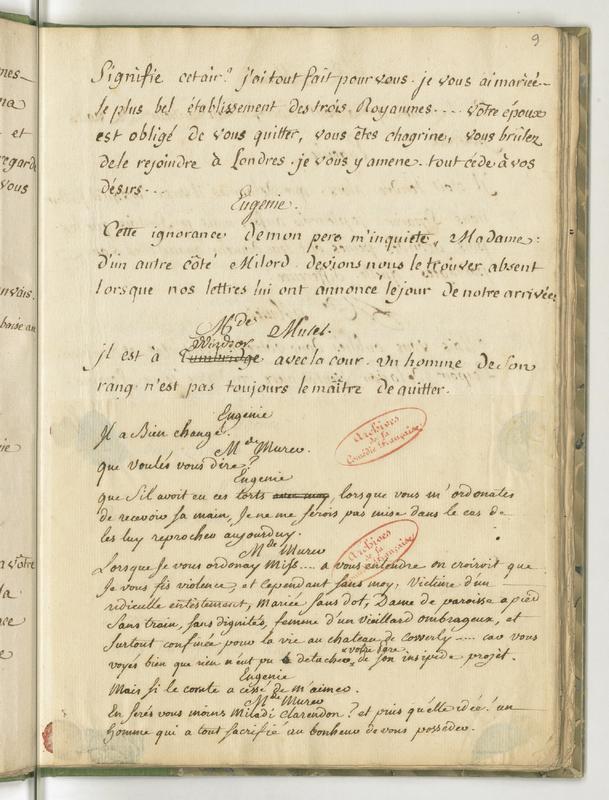 9
Signifie cet air? j'ai tout fait pour vous. je vous ai mariée
le plus bel établissement des trois Royaumes.... votre époux
est obligé de vous quitter, vous êtes chagrine, vous brulez
de le rejoindre à Londres. je vous y amene. tout cede à vos
désirs...
Eugenie.
Cette ignorance de mon pere m'inquiete, Madame:
d'un autre côté Milord. devions nous le trouver absent
lorsque nos lettres lui ont annoncé le jour de notre arrivée.
Mde. Murer.
Windsor
jl est à Tumbridge avec la cour. un homme de son
rang n'est pas toujours le maître de quitter.
Eugenie
Il a Bien changé.
Mde Murer.
que voulés vous dire?
Eugenie
que S'il avoit eu ces torts avec moy, lorsque vous m'ordonates
de recevoir sa main, Je ne me serois pas mise dans le cas de
les luy reprocher aujourduy.
Mde Murer
Lorsque Je vous ordonay Miss.... a vous entendre on croiroit que
Je vous fis violence, et cependant sans moy, Victime d'un
ridicule entestement, Mariée sans dot, Dame de paroisse a pied
Sans train, sans dignités, femme d'un vieillard ombrageux, et
surtout confinée pour la vie au chateau de Cowerly.... car vous
votre pere
voyés bien que rien n'eut pu detacher de son insipide projet.
Eugenie
Mais si le comte a cessé de m'aimer.
Mde Murer
En serés vous moins Miladi Clarendon? et puis qu'elle idée! un
homme qui a tout sacrifié au bonheur de vous posseder.
Archives
de la
Comédie française
Archives
de la
Française
nes
na
et
regard
vous
nvais.
a votre
la
ce
e